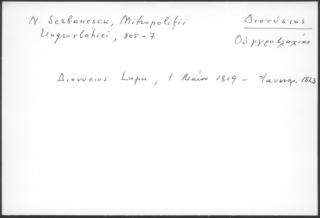 N. Serbanescu, Mitropolitii
Ungrovlahiei, 805-7
Διονύσιος
Οὑγγροβλαχίας
Διονύσιος Lupu, 1 Μαΐου 1819 - Ἰανουαρ. 1823